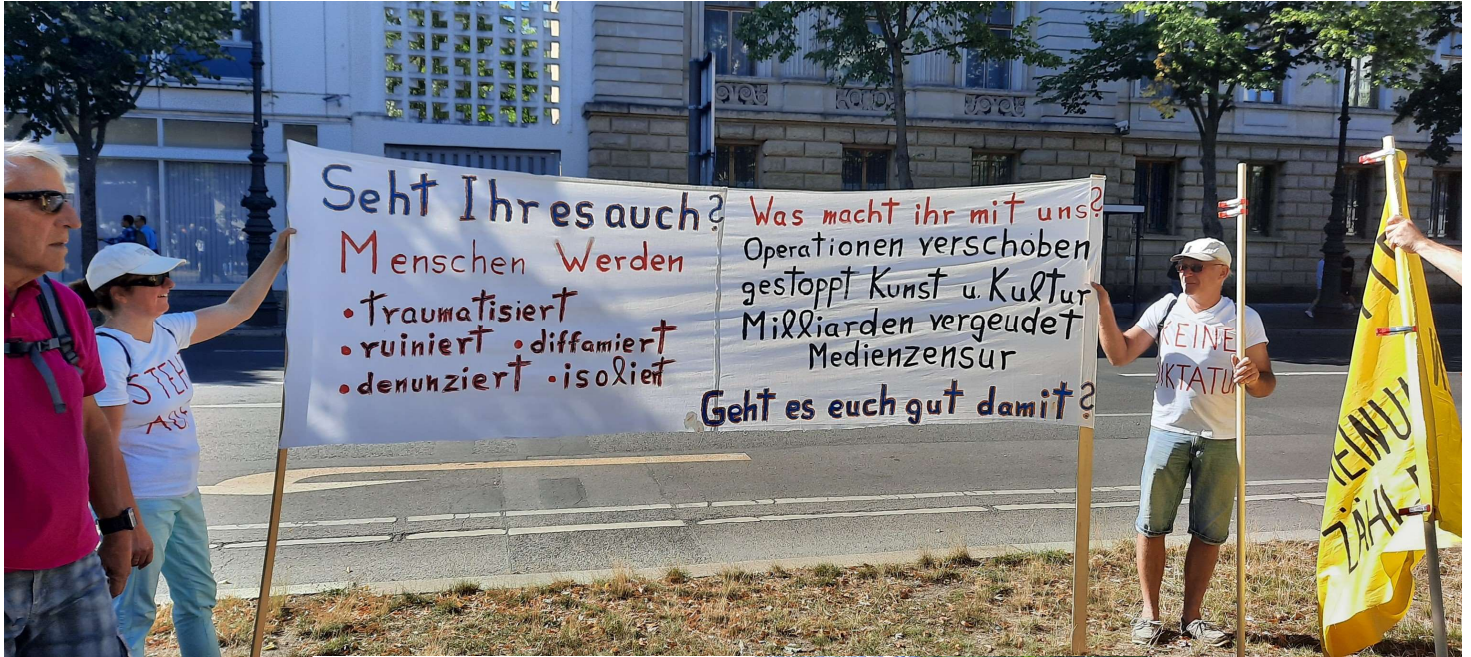 Seht Ihr es auch?
Menschen Werden
• traumatisiert
• ruiniert • diffamiert
• denunziert • isoliert
Was macht ihr mit uns?
Operationen verschoben
gestoppt Kunst u. Kultur
Milliarden vergeudet
Medienzensur
Geht es euch gut damit?
STEH
AUF
KEINE
DIKTATUR